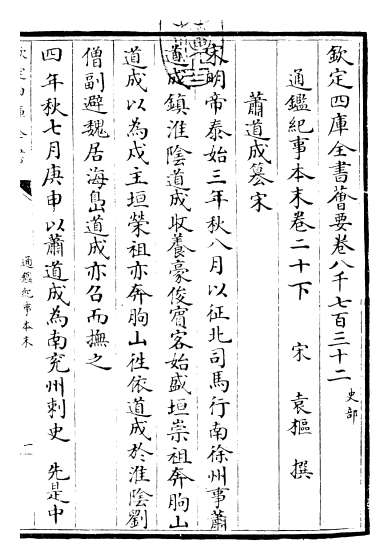 欽定四庫全書薈要卷八千七百三十二 史部
通鑑紀事本末卷二十下 宋 袁樞 撰
蕭道成篡宋
宋明帝泰始三年秋八月以征北司馬行南徐州事蕭
道成鎮淮陰道成收養豪俊賓客始盛垣崇祖奔朐山
道成以為戍主垣榮祖亦奔朐山往依道成於淮陰劉
僧副避魏居海島道成亦召而撫之
四年秋七月庚申以蕭道成為南兖州刺史 先是中
通鑑紀事本末
一